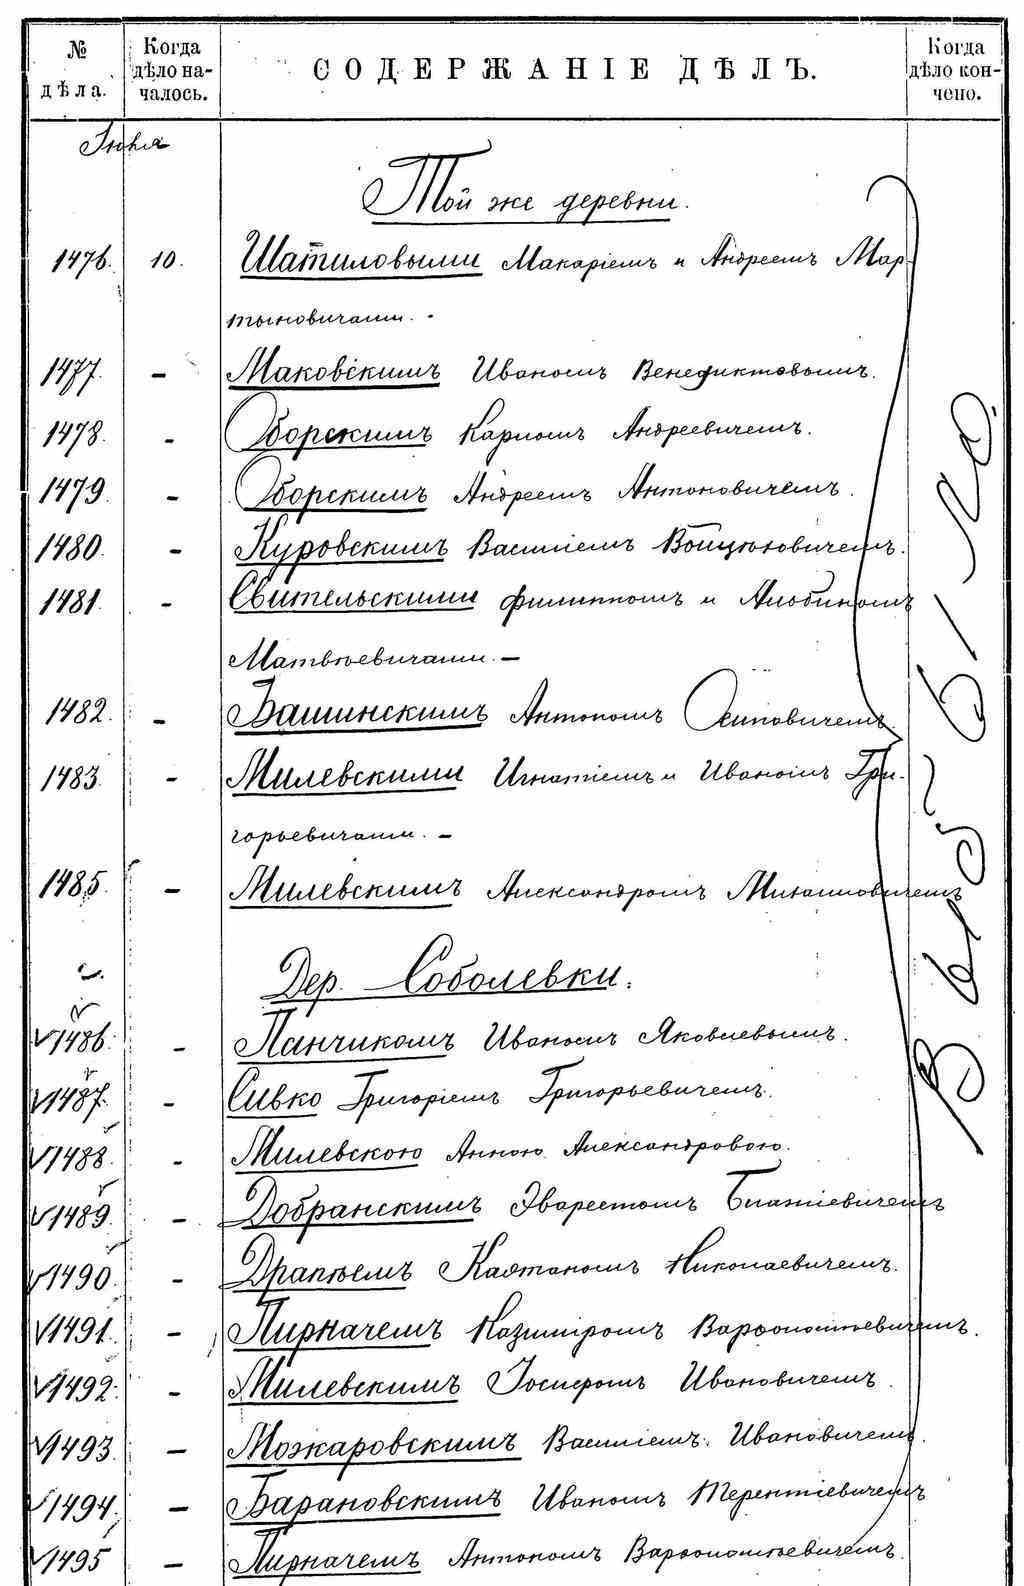 № дѣла.
Когда дѣло на-чалось.
СОДЕРЖАНІЕ ДѢЛЪ.
Когда дѣло кон-чено.
Іюня
Той же деревни.
1476. 10. Шатиловыми Макаріемъ и Андреемъ Мар-
тыновичами. -
1477. — Маковскимъ Иваномъ Венедиктовымъ.
1478. - Оборскимъ Карпомъ Андреевичемъ.
1479. - Оборскимъ Андреемъ Антоновичемъ.
1480. - Куровскимъ Василіемъ Войцѣховичемъ.
1481. - Свительскими Филиппомъ и Альбиномъ
Матвѣевичами. —
1482. - Башинскимъ Антономъ Осиповичемъ.
1483. - Милевскими Игнатіемъ и Иваномъ Гри-
горьевичами. —
1485. — Милевскимъ Александромъ Михаиловичемъ
Дер. Соболевки.
1486. - Панчикомъ Иваномъ Яковлевымъ.
1487. - Сивко Григоріемъ Григорьевичемъ.
1488. - Милевскою Анною Александровою.
1489. - Добранскимъ Эварестомъ Игнатіевичемъ
1490. - Драпѣемъ Каэтаномъ Николаевичемъ.
1491. - Пирначемъ Казимромъ Варфоломѣевичемъ.
1492. - Милевскимъ Іосифомъ Ивановичемъ.
1493. — Можаровскимъ Василіемъ Ивановичемъ.
1494. — Барановскимъ Иваномъ Терентіевичемъ
1495 — Пирначемъ Антономъ Варфоломѣевичемъ.